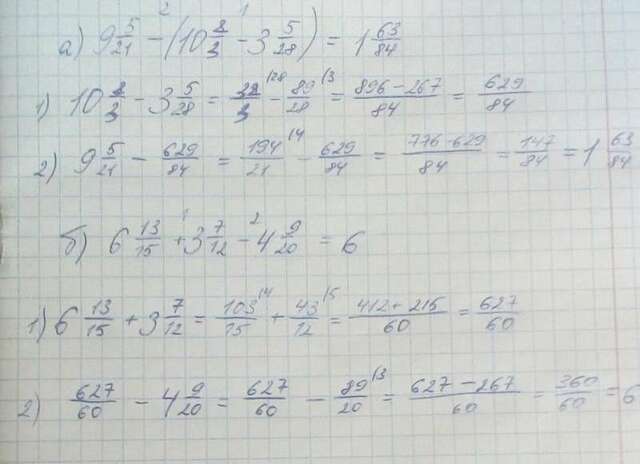 2 1
а) 9 5/21 - (10 2/3 - 3 5/28) = 1 63/84
1) 10 2/3 - 3 5/28 = 32/3 /28 - 89/28 /3 = 896-267/84 = 629/84
2) 9 5/21 - 629/84 = 194/21 /4 - 629/84 = 776-629/84 = 147/84 = 1 63/84
1 2
б) 6 13/15 + 3 7/12 - 4 9/20 = 6
1) 6 13/15 + 3 7/12 = 103/15 /4 + 43/12 /5 = 412+215/60 = 627/60
2) 627/60 - 4 9/20 = 627/60 - 89/20 /3 = 627-267/60 = 360/60 = 6